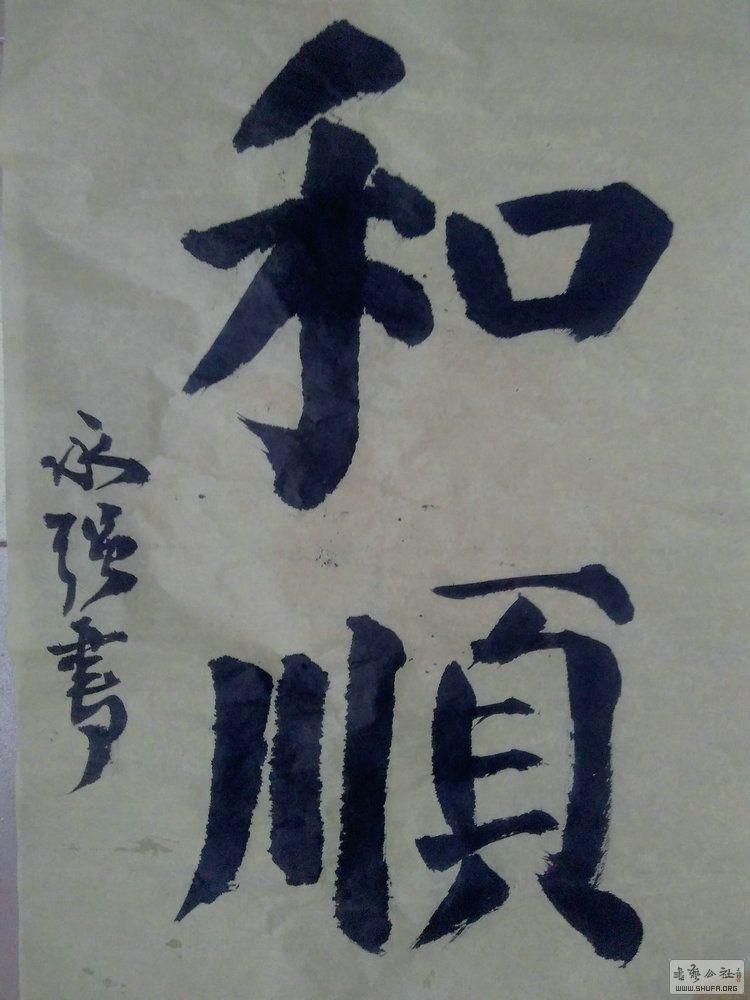 和順
永强書
书艺公社
WWW.SHUFA.ORG